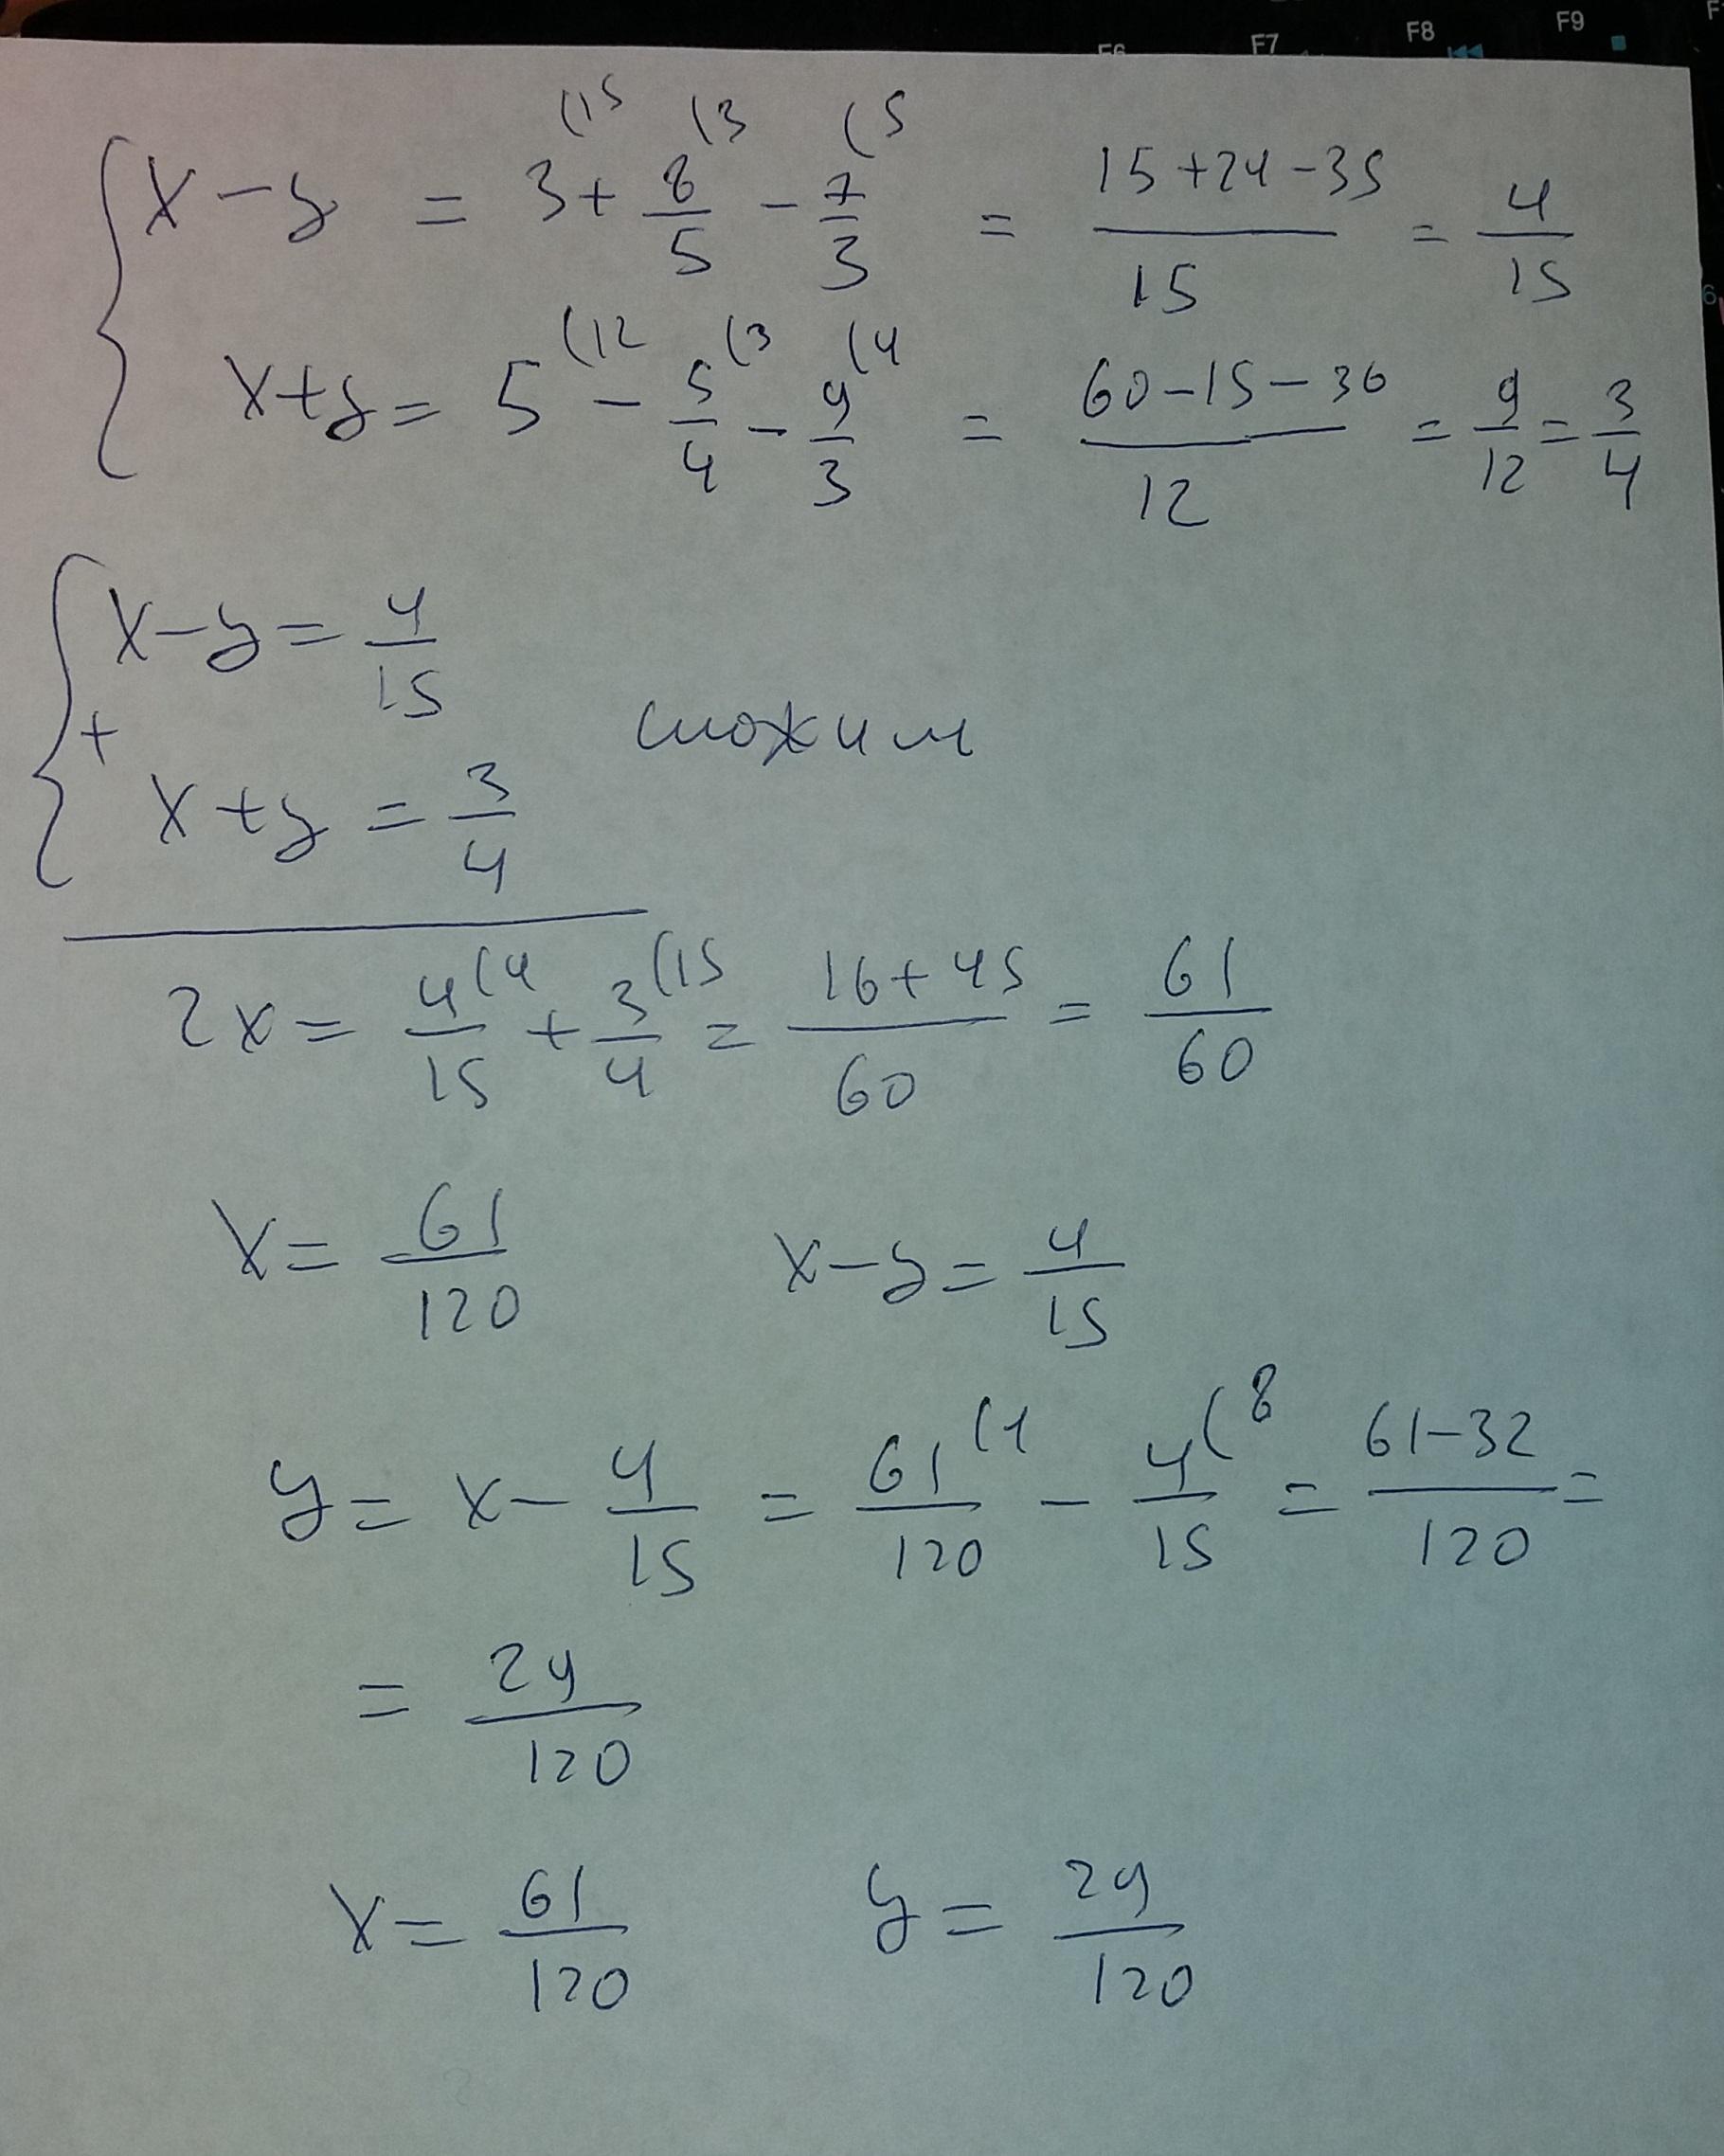 F6 F7 F8 F9
{ x-y = 3(15 + 8/5(3 - 7/3(5 = (15+24-35)/15 = 4/15
x+y = 5(12 - 5/4(3 - 9/3(4 = (60-15-36)/12 = 9/12 = 3/4
{ x-y = 4/15
+ сложим
x+y = 3/4
2x = 4/15(4 + 3/4(15 = (16+45)/60 = 61/60
x = 61/120 x-y = 4/15
y = x - 4/15 = 61/120(1 - 4/15(8 = (61-32)/120 =
= 29/120
x = 61/120 y = 29/120